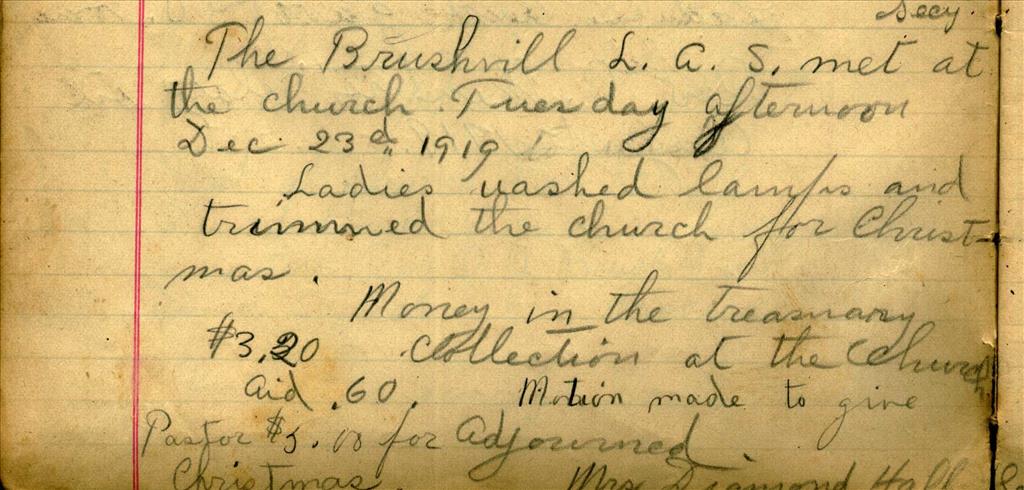 Secy.
The Brushvill L. A. S. met at
the church Tuesday afternoon
Dec 23d, 1919
Ladies washed lamps and
trimmed the church for Christ-
mas.
Money in the treasuary
$3.20 Collection at the Church
aid .60. Motion made to give
Pastor $5.00 for Adjourned
Christmas. Mrs Diamond Hall